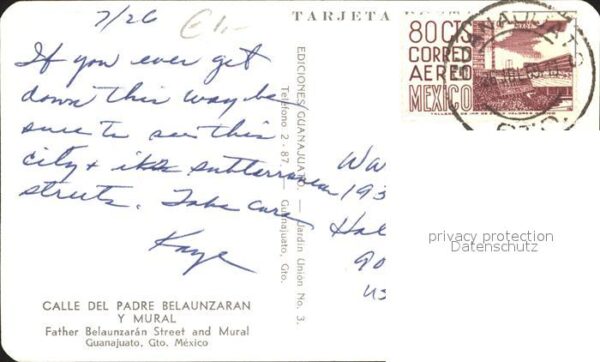 7/26
£1.-
TARJETA
If you ever get
down this way be
sure to see this
city + its subterranean
streets. Take care
Kaye
CALLE DEL PADRE BELAUNZARAN
Y MURAL
Father Belaunzarán Street and Mural
Guanajuato, Gto. México
EDICIONES GUANAJUATO. — Jardín Unión No. 3.
Teléfono 2-87. — Guanajuato, Gto.
80 CTS
CORREO
AEREO
MEXICO
193
Hal
90
US
privacy protection
Datenschutz